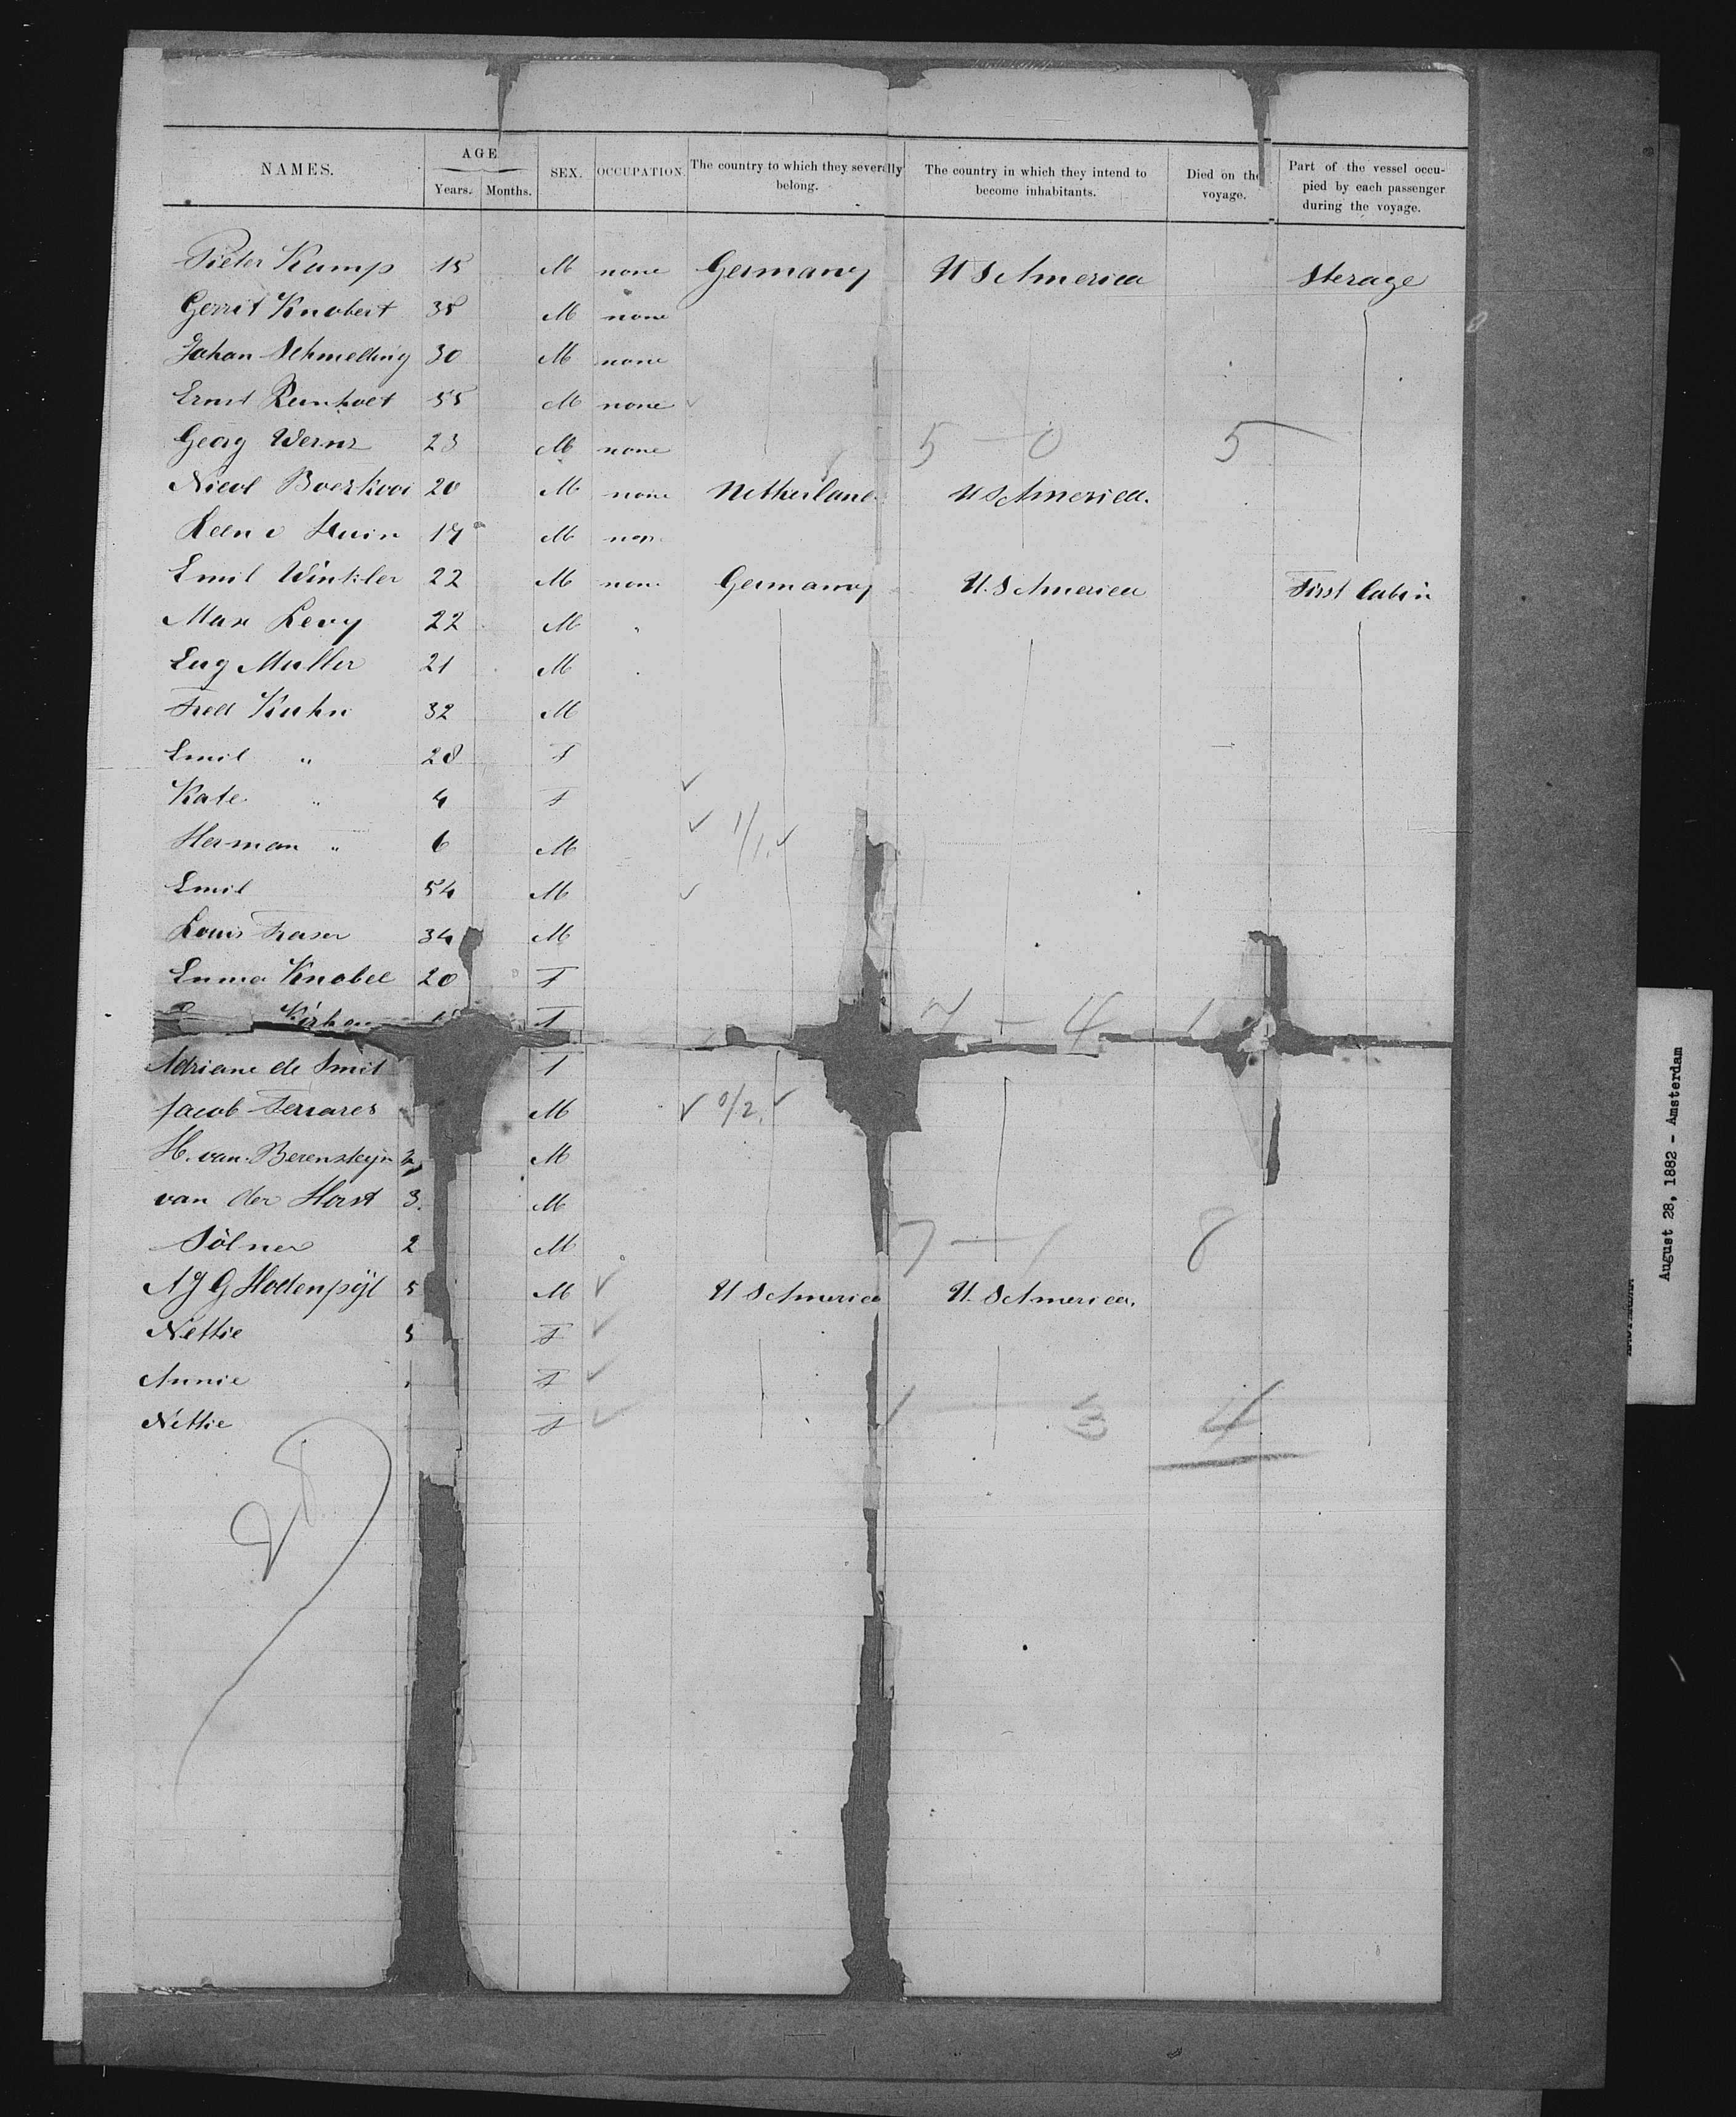 NAMES. AGE Years. Months. SEX. OCCUPATION. The country to which they severally belong. The country in which they intend to become inhabitants. Died on the voyage. Part of the vessel occupied by each passenger during the voyage.
Pieter Kamp 15 M none Germany U S America Sterage
Gerrit Knobert 35 M none
Johan Schmelling 30 M none
Ernst 55 M none
Georg Wernz 23 M none 5 0 5
Nicol 20 M none Netherland U S America.
17 M non
Emil Winkler 22 M none Germany U. S America First Cabin
Max Levy 22 M
Eug Muller 21 M
Fred Kuhn 32 M
Emil " 28 F
Kate " 4 F
Herman " 6 M 1/1.
Emil 54 M
Louis 34 M
Emma Knobel 20 F
F 7 - 4 1
Adriane de Smit F
Jacob M 0/2.
H. van Berensteyn M
van der Horst 3 M
Sölner 2 M 7 - 1 8
A J G Hodenpijl 5 M U S America U. S America.
Nettie 3 F
Annie F
Nettie F 1 3 4
28
August 28, 1882 - Amsterdam